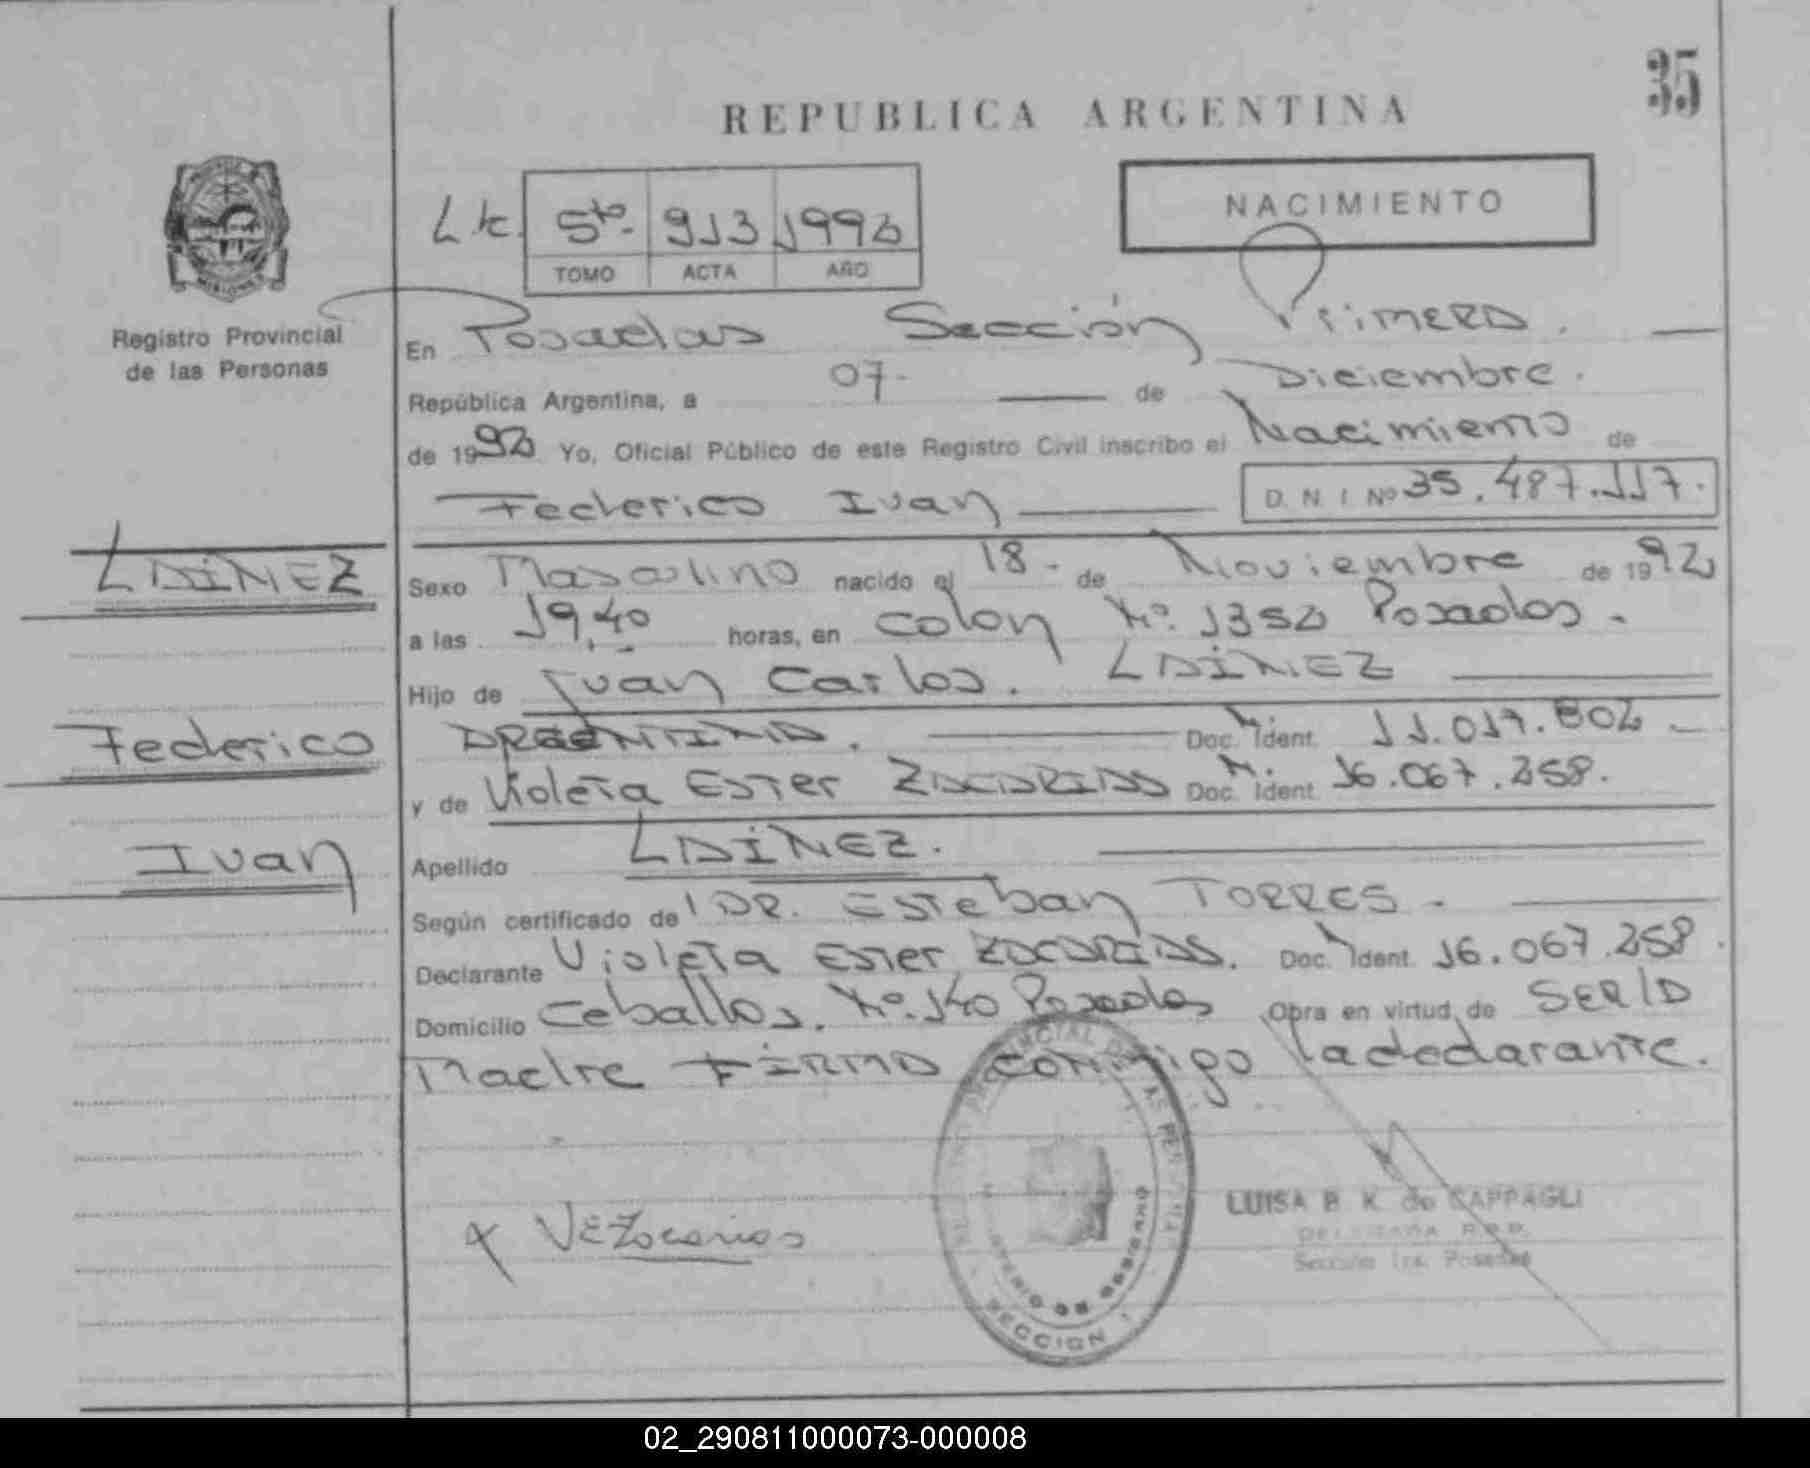 35
REPUBLICA ARGENTINA
NACIMIENTO
5to. 913 1992
TOMO ACTA AÑO
MISIONES
Registro Provincial
de las Personas
En Posadas Sección Primera.
República Argentina, a 07. de Diciembre.
de 1992 Yo, Oficial Público de este Registro Civil inscribo el Nacimiento de
Federico Ivan D. N. I Nº 35.487.117.
LAINEZ
Federico
Ivan
Sexo Masculino nacido el 18- de Noviembre de 1992
a las 19,40 horas, en Colon Nº. 1352 Posadas.
Hijo de Juan Carlos. LAINEZ
ARGENTINO. Doc. Ident. 11.017.802
y de Violeta Ester ZACARIAS Doc. Ident. 16.067.258.
Apellido LAINEZ.
Según certificado de DR. Esteban TORRES.
Declarante Violeta Ester ZACARIAS. Doc. Ident. 16.067.258.
Domicilio Ceballos. Nº. 140 Posadas Obra en virtud de SER LA
Madre FIRMA conmigo la declarante.
VEZacarias
SECCION 1
LUISA B. K. de CAPPAGLI
DELEGADA R.P.P.
Sección 1ra. Posadas
02_290811000073-000008